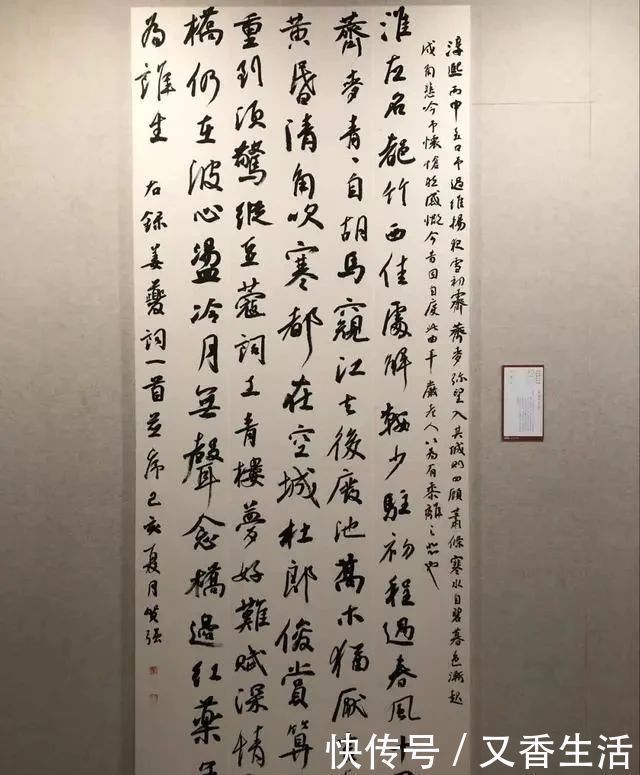 淳熙丙申至日予過維揚夜雪初霽薺麥弥望入其城則四顧蕭條寒水自碧暮色漸起
戍角悲吟予懷愴然感慨今昔因自度此曲千巖老人以為有黍離之悲也
淮左名都竹西佳處解鞍少駐初程過春風十
薺麥青、自胡馬窺江去後廢池喬木猶厭
黃昏清角吹寒都在空城杜郎俊賞算
重到須驚縱豆蔻詞工青樓夢好難賦深情
橋仍在波心盪冷月無聲念橋邊紅藥年
為誰生 右錄姜夔詞一首並序己亥夏月
快传号／又香生活